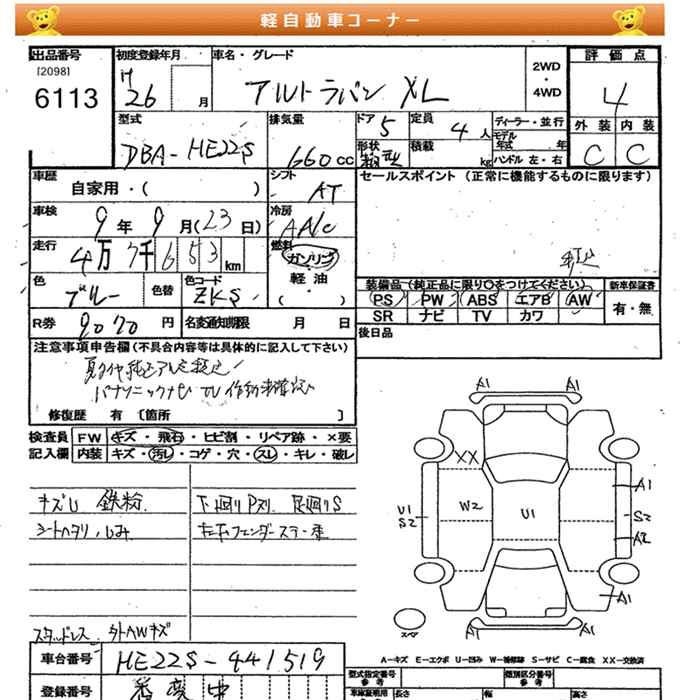 軽自動車コーナー
出品番号 初度登録年月 車名・グレード 評価点
[2098] H 2WD
6113 26 月 アルトラパン XL 4WD 4
型式 排気量 ドア 5 定員 4人 ディーラー・並行 外装 内装
DBA-HE22S 660cc 形状 箱型 積載 kg モデル年式 年 C C
ハンドル 左・右
車歴 自家用・( ) シフト AT セールスポイント (正常に機能するものに限ります)
車検 9年 9月(23日) 冷房 AA/C
走行 4万 7千 653 km 燃料 ガソリン
軽・油
・( )
色 ブルー 色替 色コード ZKS 装備品 (純正品に限り○をつけてください) 新車保証書
PS PW ABS エアB AW 有・無
SR ナビ TV カワ
R券 9070円 名変通知期限 月 日 後日品
注意事項申告欄 (不具合内容等は具体的に記入して下さい)
修復歴 有 〔箇所 〕
検査員 FW キズ・飛石・ヒビ割・リペア跡・×要
記入欄 内装 キズ・汚し・コゲ・穴・スレ・キレ・破レ
キズU 鉄粉 下廻りPスリ 足廻りS
シートヘタリ、しみ 左右フェンダーステー歪
スタッドレス 外AWキズ
A1 A1
XX
W2 U1 A1
U1 S2
S2 A2
A1
A1 A1
スペア
A-キズ E-エクボ U-凹み W-補修跡 S-サビ C-腐食 XX-交換済
車台番号 HE22S-441519
登録番号 番変中
型式指定番号 参考 類別区分番号 参考
長さ 幅 高さ